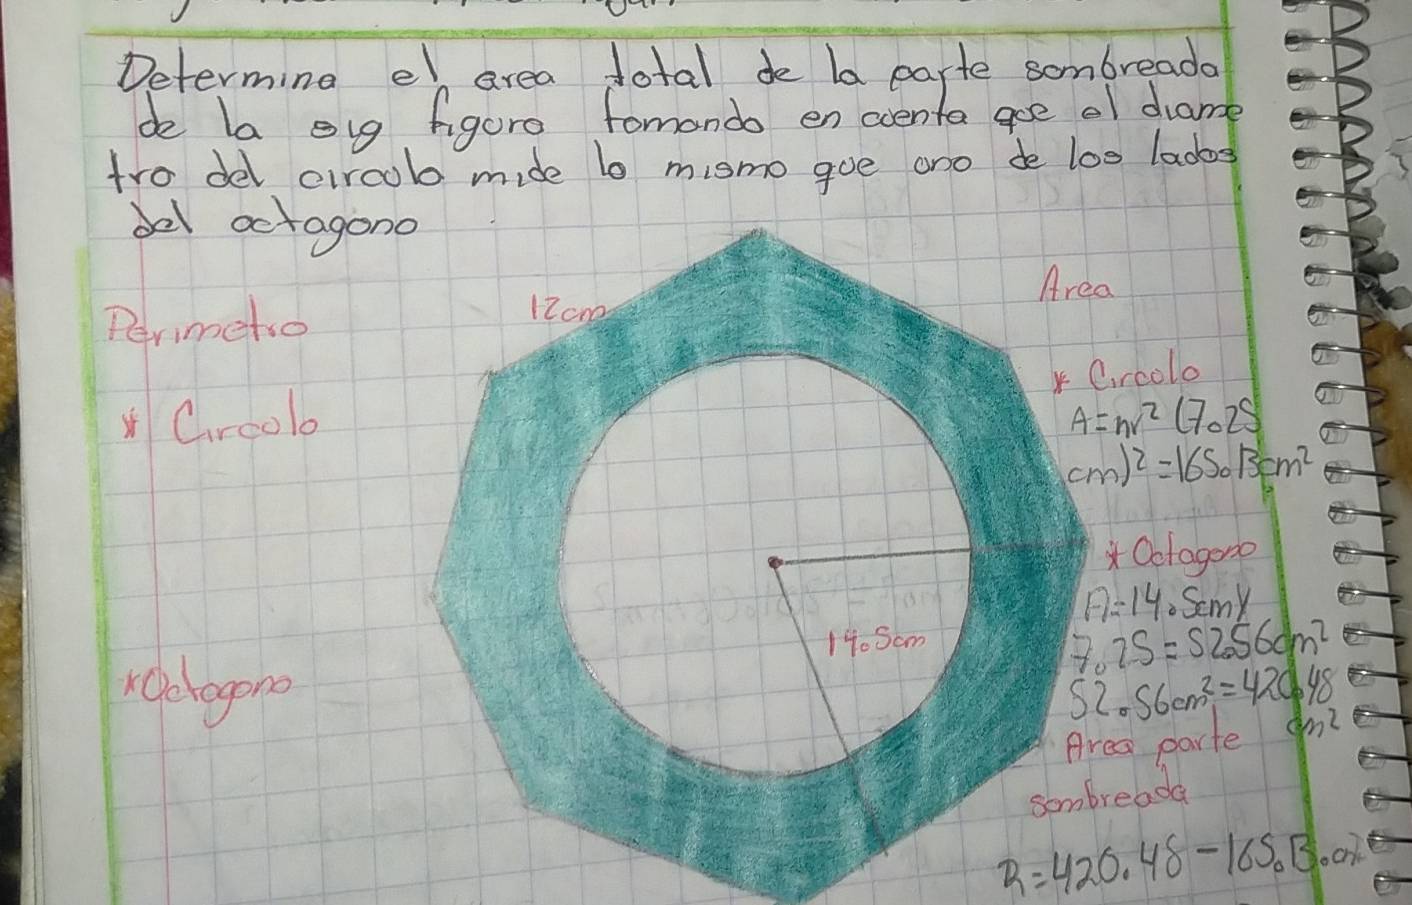 Determina el area total de la parte sombreada
de la sig figura tomando en cuenta que el diame
tro del circulo mide lo mismo que uno de los lados
del octagono
12cm
Area
Perimetro
* Circulo
* Circulo
A=πr² (7.25
cm)²=165.13cm²
* Octagono
A=14.5cm x
14.5cm
7.25=52.56cm²
*Octogono
52.56cm²=420.48
cm²
Area parte
sombreada
R=420.48-165.13.cm²